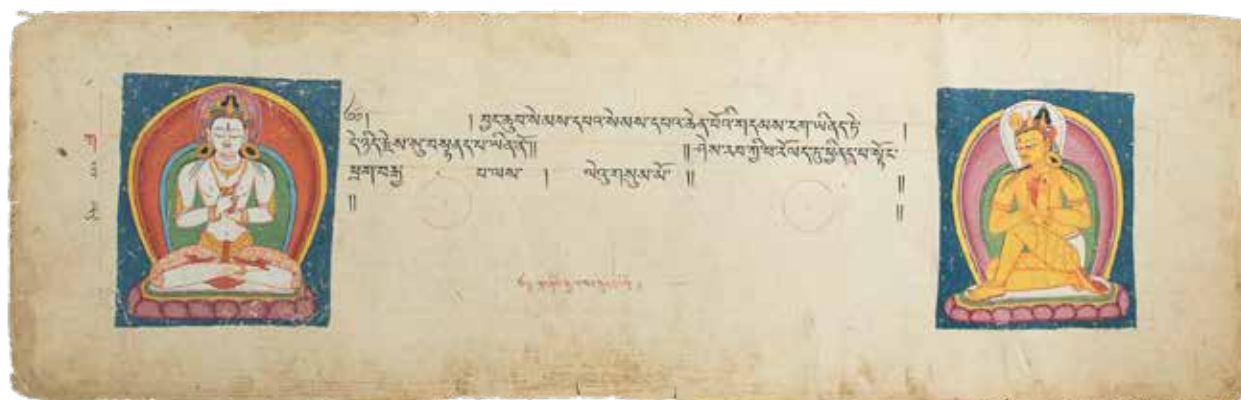 ག
༄༅། ། བྱང་ཆུབ་སེམས་དཔའ་སེམས་དཔའ་ཆེན་པོའི་གདམས་ངག་ཡིནད་ཏེ །
དེ་ཉིད་རྗེས་སུ་བསྟནད་པ་ཡིན་ནོ༎ ༎ཤེས་རབ་ཀྱི་ཕ་རོལད་ཏུ་ཕྱིནད་པ་སྟོང་
ཕྲག་བརྒྱ པ་ལས་ ། ལེའུ་གསུམ་མོ་ ༎ ༎
༎ ༎